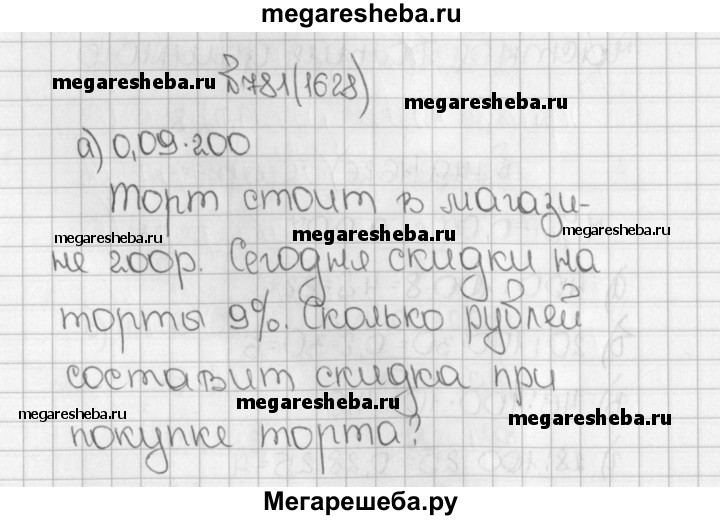 megaresheba.ru
№781(1628)
megaresheba.ru
megaresheba.ru
а) 0,09·200
Торт стоит в магази-
megaresheba.ru
megaresheba.ru
megaresheba.ru
не 200р. Сегодня скидки на
торты 9%. Сколько рублей
составит скидка при
megaresheba.ru
megaresheba.ru
megaresheba.ru
покупке торта?
Мегарешеба.ру